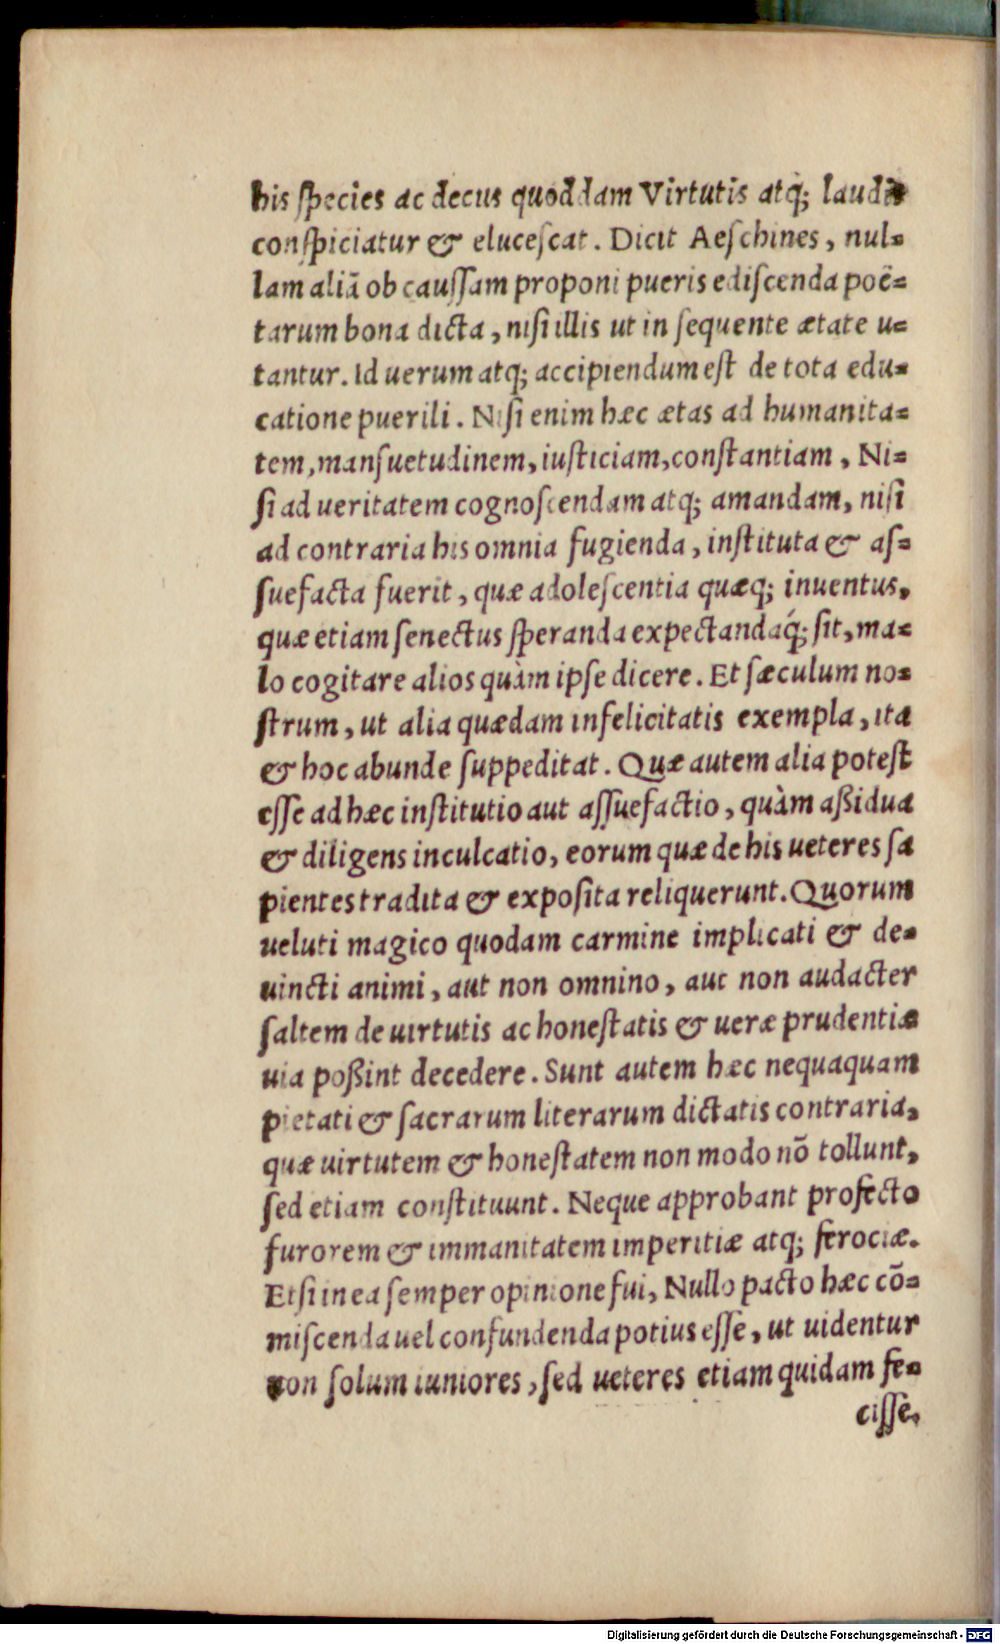 his ſpecies ac decus quoddam Virtutis atq́; laudis
conſpiciatur & eluceſcat. Dicit Aeſchines, nul-
lam aliā ob cauſſam proponi pueris ediſcenda poë-
tarum bona dicta, niſi illis ut in ſequente ætate u-
tantur. Id uerum atq; accipiendum eſt de tota edu-
catione puerili. Niſi enim hæc ætas ad humanita-
tem, manſuetudinem, iuſticiam, conſtantiam, Ni-
ſi ad ueritatem cognoſcendam atq; amandam, niſi
ad contraria his omnia fugienda, inſtituta & aſ-
ſuefacta fuerit, quæ adoleſcentia quæq; inuentus,
quæ etiam ſenectus ſperanda expectandaq́; ſit, ma-
lo cogitare alios quàm ipſe dicere. Et ſæculum no-
ſtrum, ut alia quædam infelicitatis exempla, ita
& hoc abunde ſuppeditat. Quæ autem alia poteſt
eſſe ad hæc inſtitutio aut aſſuefactio, quàm aßidua
& diligens inculcatio, eorum quæ de his ueteres ſa
pientes tradita & expoſita reliquerunt. Quorum
ueluti magico quodam carmine implicati & de-
uincti animi, aut non omnino, aut non audacter
ſaltem de uirtutis ac honeſtatis & ueræ prudentiæ
uia poßint decedere. Sunt autem hæc nequaquam
pietati & ſacrarum literarum dictatis contraria,
quæ uirtutem & honeſtatem non modo nō tollunt,
ſed etiam conſtituunt. Neque approbant profecto
furorem & immanitatem imperitiæ atq; ferociæ.
Etſi in ea ſemper opinione fui, Nullo pacto hæc cō-
miſcenda uel confundenda potius eſſe, ut uidentur
non ſolum iuniores, ſed ueteres etiam quidam fe-
ciſſe.
Digitalisierung gefördert durch die Deutsche Forschungsgemeinschaft - DFG